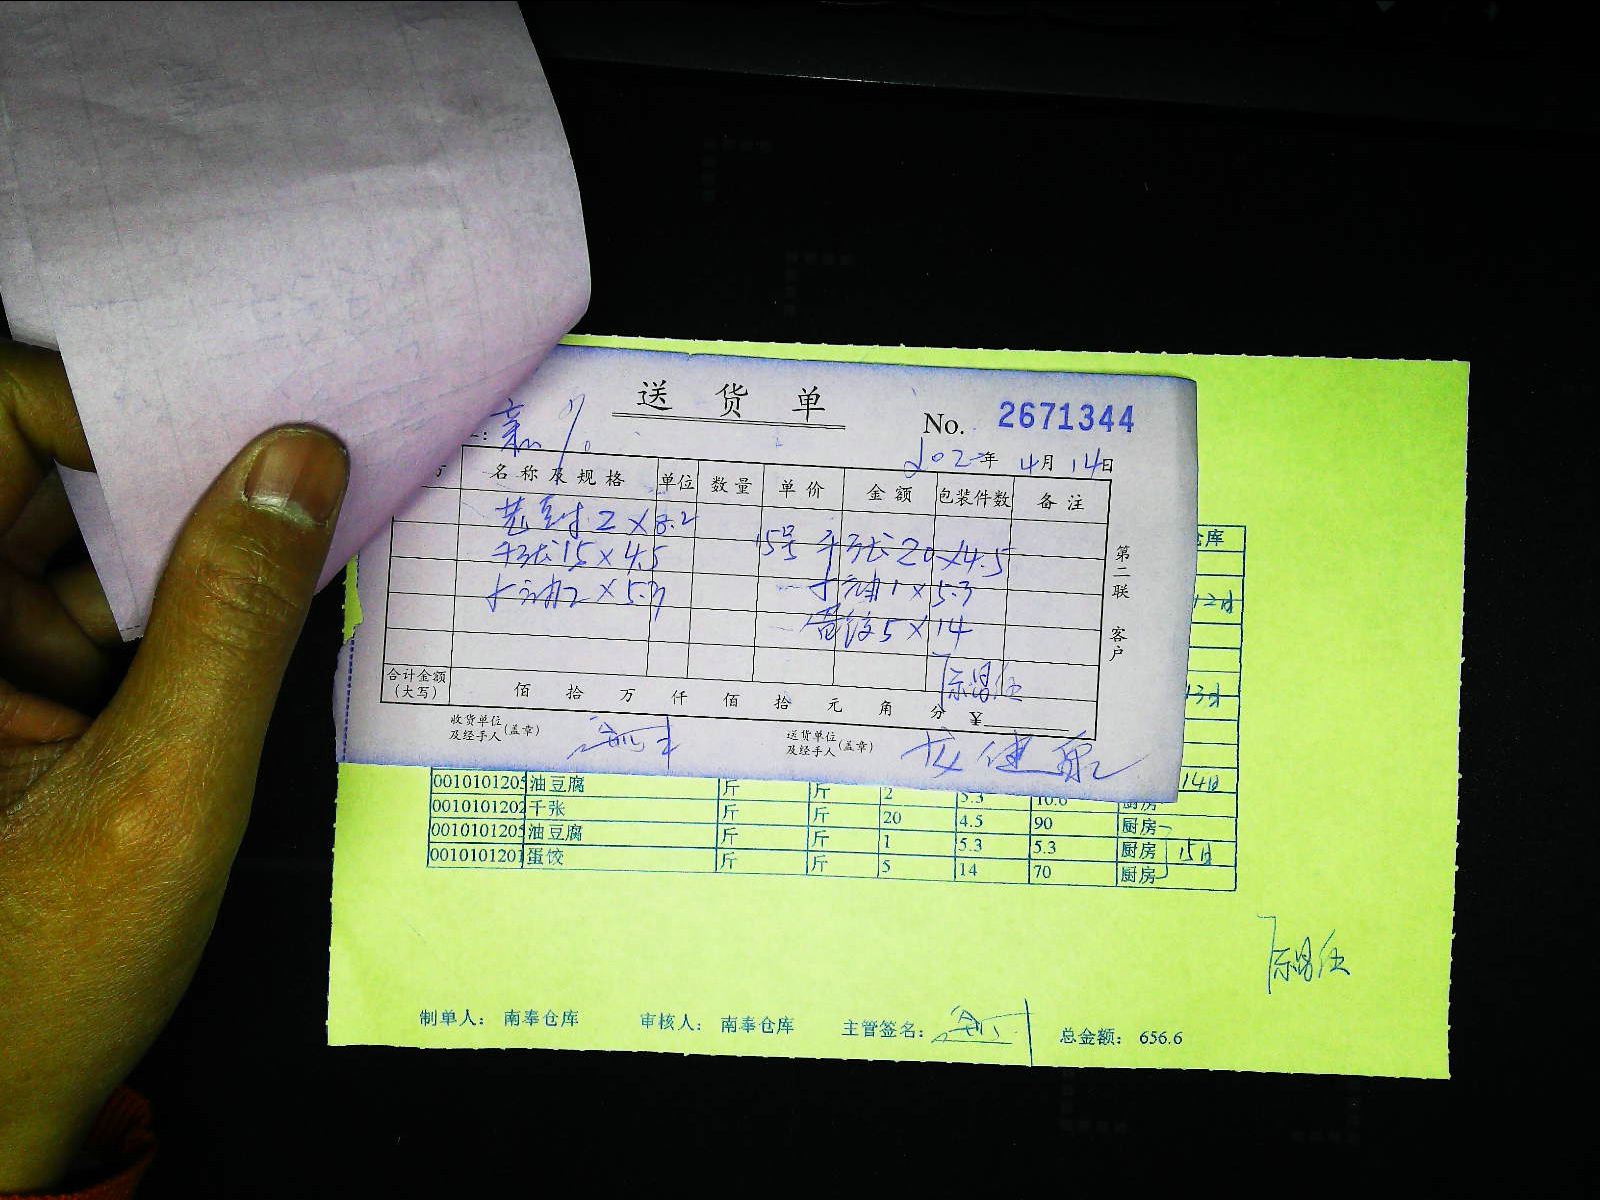 送货单
No. 2671344
202 年 4月 14日
名称及规格 单位 数量 单价 金额 包装件数 备注
2 × 8.2
千张 15 × 4.5 15号 千张 20 × 4.5
2 × 5.3 1 × 5.3
蛋饺 5 × 14
合计金额(大写) 佰 拾 万 仟 佰 拾 元 角 分 ¥
收货单位及经手人(盖章) 送货单位及经手人(盖章)
第二联 客户
仓库
12日
13日
14日
0010101205 油豆腐 斤 斤 2 5.3 10.6 厨房
0010101202 千张 斤 斤 20 4.5 90 厨房
0010101205 油豆腐 斤 斤 1 5.3 5.3 厨房 15日
0010101201 蛋饺 斤 斤 5 14 70 厨房
制单人： 南奉仓库 审核人： 南奉仓库 主管签名： 总金额： 656.6